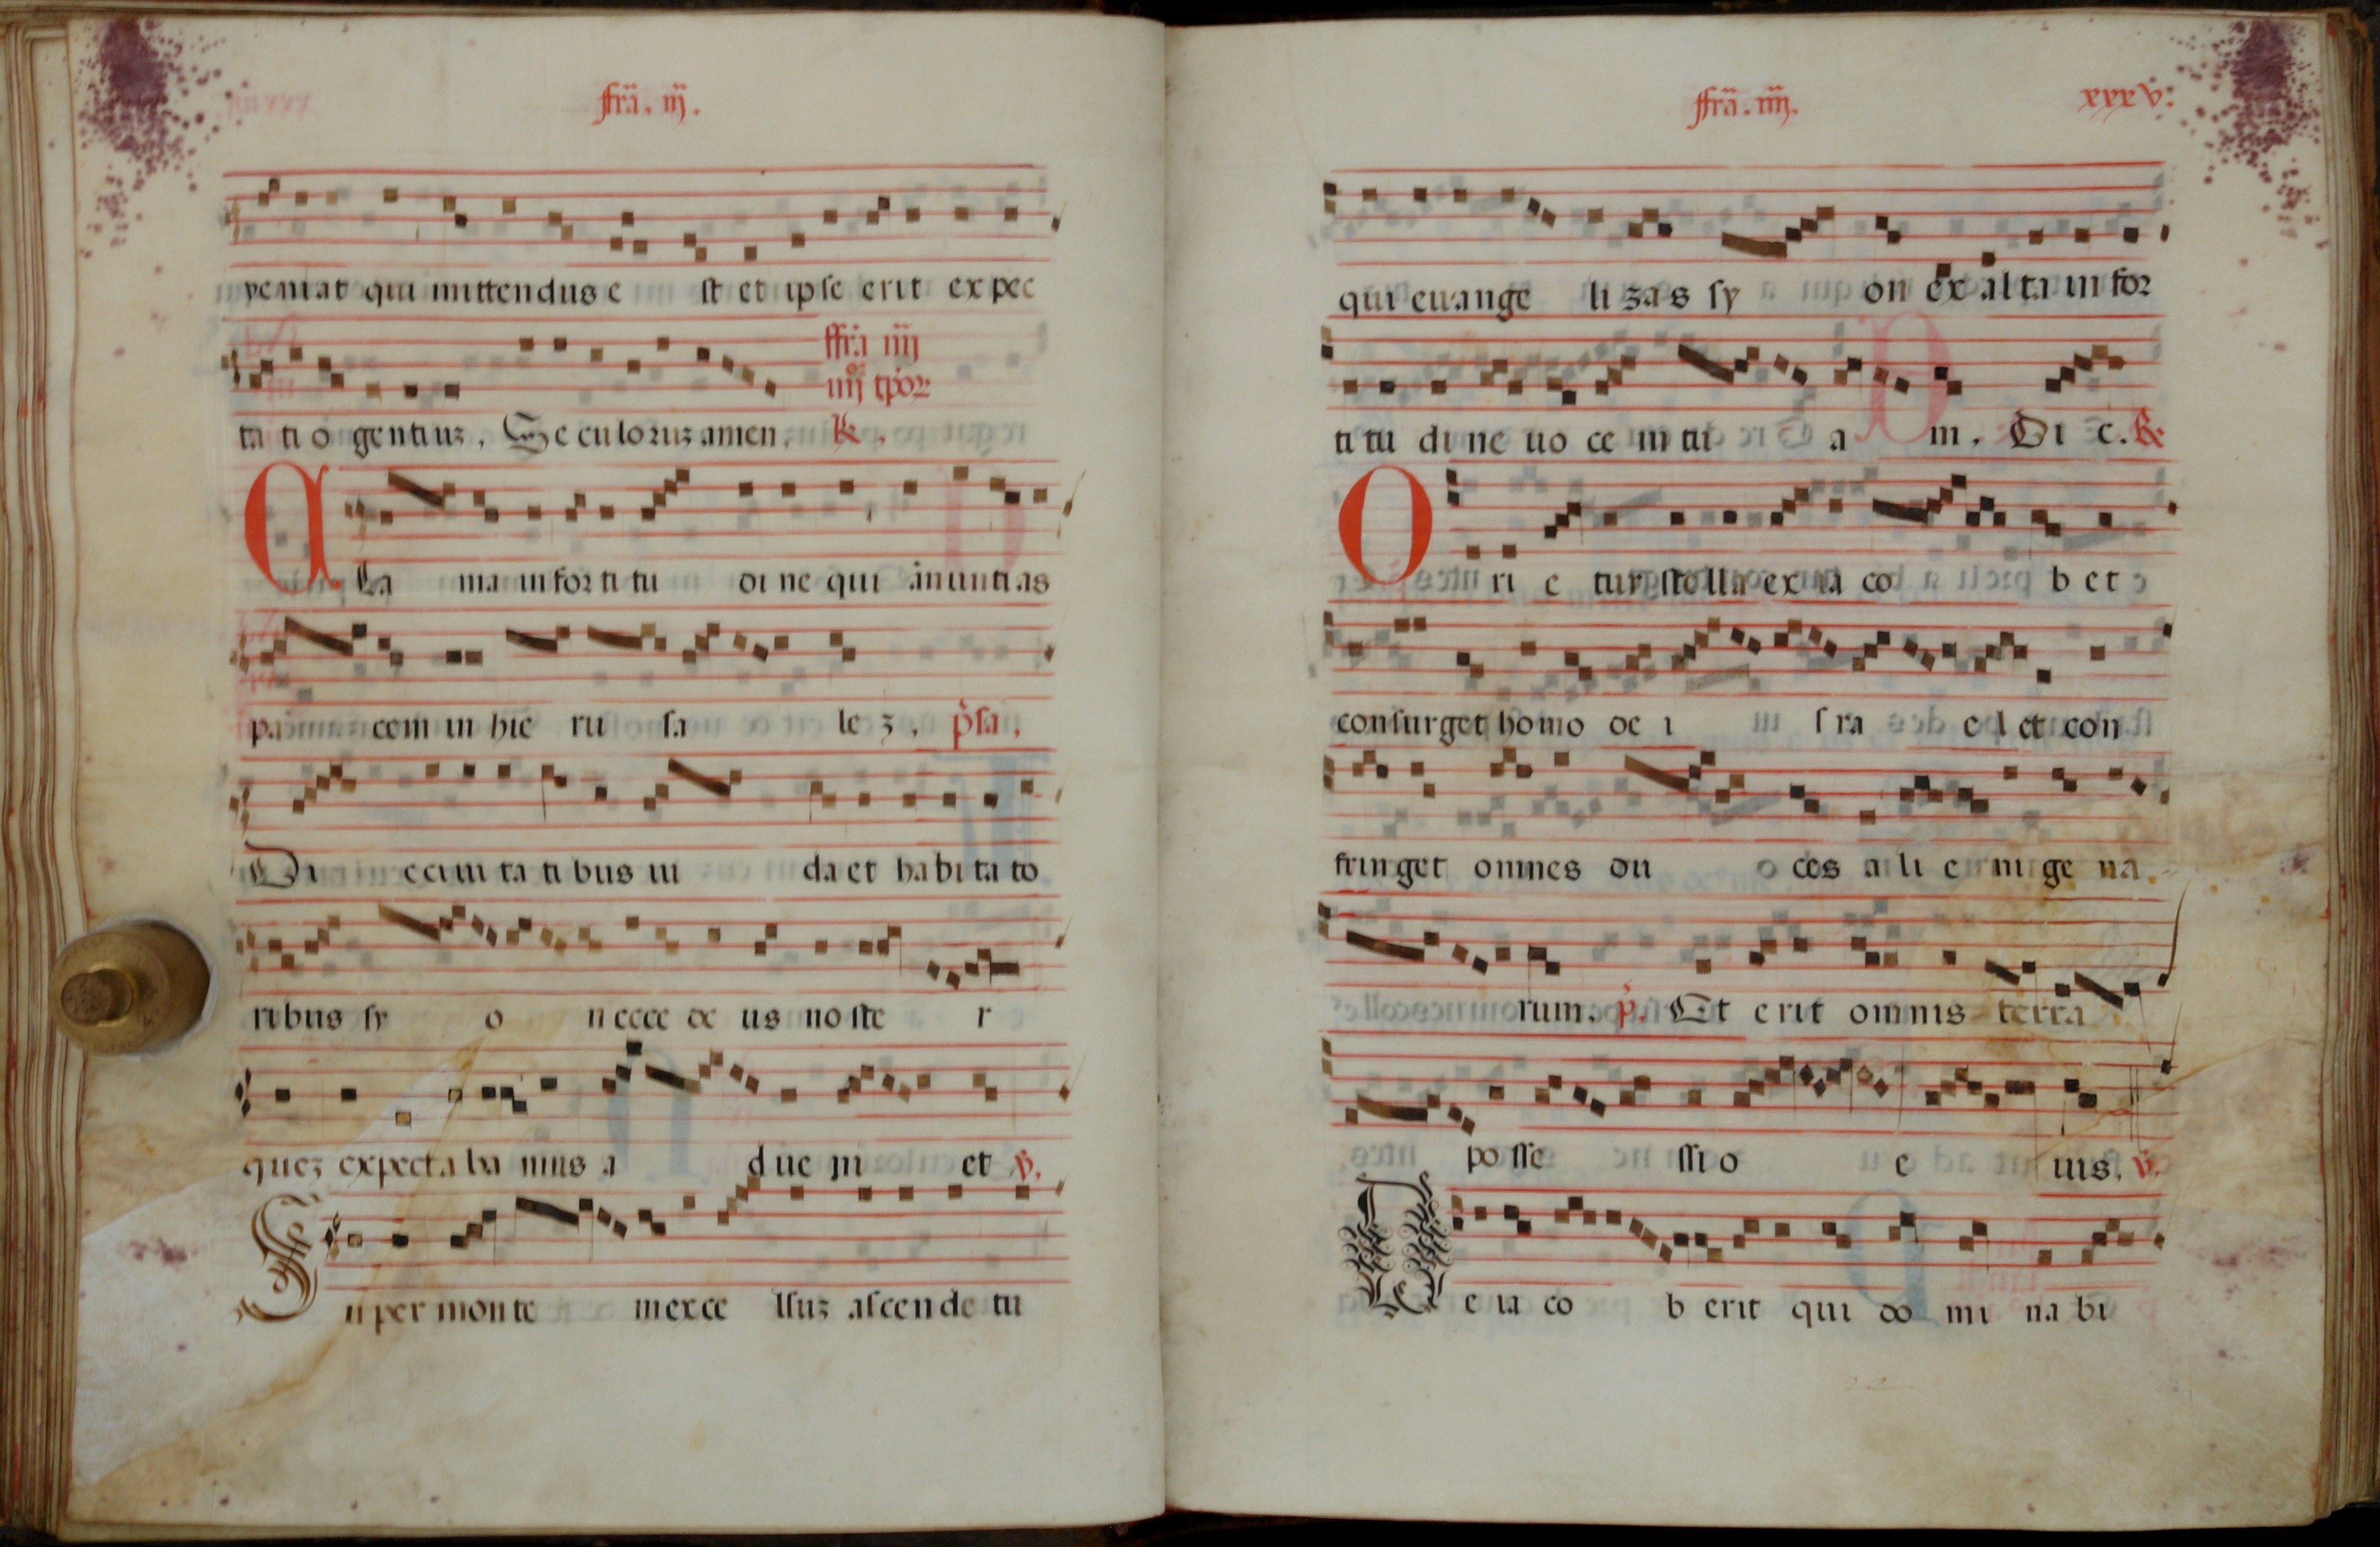 ffrã. iij.
veniat qui mittendus e st et ipse erit ex pec
ffrã iiij
iiij tpor
ta ti o gentiuz. Se culoruz amen. R.
Cla ma in for ti tu di ne qui anunti as
pa cem in hie ru sa le z. psa.
Di c ciui ta ti bus iu da et habi ta to
ribus sy o n ecce de us no ste r
quez expecta ba mus a d ue ni et v.
Super mon te m exce lsuz ascen de tu
ffrã. iiij.
xxxv:
qui euange li zas sy on ex al ta in for
ti tu di ne uo ce m tu a m. Di c. R
O ri e tur stella ex ia co b et
consurget homo de i s ra e l et con
fringet omnes du o ces a li e ni ge na
rum. p. Et erit omnis terra
po sse ssi o e ius. v.
De ia co b erit qui do mi na bi